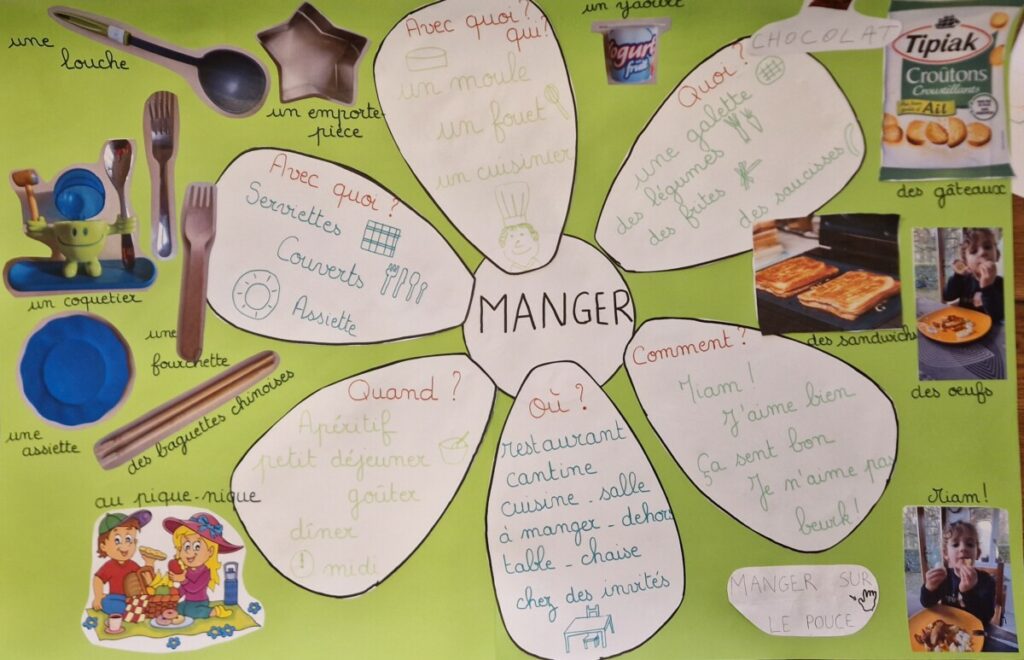 une
louche
un emporte-
pièce
un coquetier
une
fourchette
une
assiette
des baguettes chinoises
au pique-nique
Avec quoi ?
qui ?
un moule
un fouet
un cuisinier
Avec quoi ?
Serviettes
Couverts
Assiette
Quand ?
Apéritif
petit déjeuner
goûter
dîner
midi
MANGER
Où ?
restaurant
cantine
cuisine - salle
à manger - dehors
table - chaise
chez des invités
Quoi ?
une galette
des légumes
des frites
des saucisses
Comment ?
Miam !
J'aime bien
Ça sent bon
Je n'aime pas
beurk !
un yaourt
Yogurt
fruit
CHOCOLAT
Tipiak
Croûtons
Croustillants
Ail
des gâteaux
des sandwichs
des oeufs
Miam !
MANGER SUR
LE POUCE